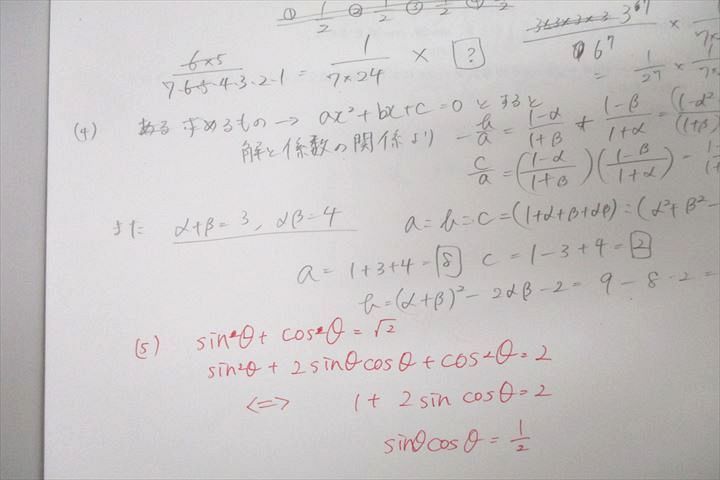 ① 1/2 ② 1/2 ③ 1/2 ④ 1/2
(6×5)/(7·6·5·4·3·2·1) = 1/(7×24) × [?]
3×3×3×3 3^67
67
= 1/27 ×
(4) ある 求めるもの → ax²+bx+c=0 とすると
解と係数の関係より -b/a = (1-α)/(1+β) + (1-β)/(1+α) =
c/a = ((1-α)/(1+β))((1-β)/(1+α)) =
また α+β=3, αβ=4 a:b:c=(1+α+β+αβ):(α²+β²-
a=1+3+4=[8] c=1-3+4=[2]
b=(α+β)²-2αβ-2=9-8-2=
(5) sinθ+cosθ=√2
sin²θ+2sinθcosθ+cos²θ=2
<=> 1+2sin cosθ=2
sinθcosθ=1/2